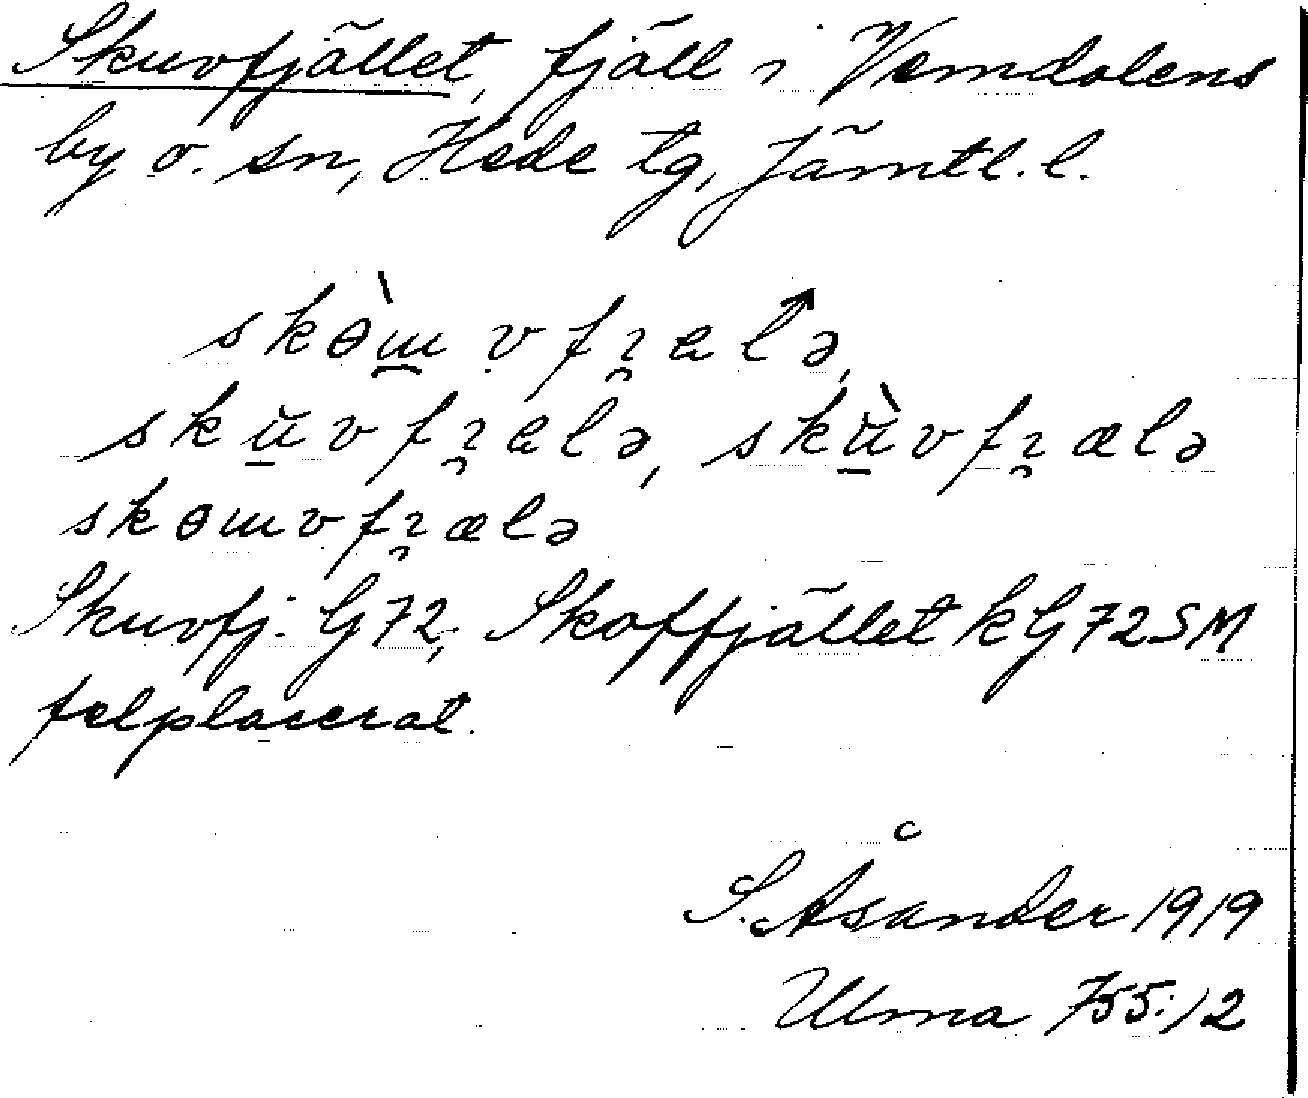 Skuvfjället, fjäll i Vemdalens
by o. sn, Hede tg, Jämtl. l.
skɵ̀ɯvfꞮælə,
skŭvfꞮælə, skŭ̀vfꞮælə
skɵɯvfꞮælə
Skuvfj. G72, Skoffjället kG72SM
felplacerat.
S. Åsander 1919
Ulma 755:12